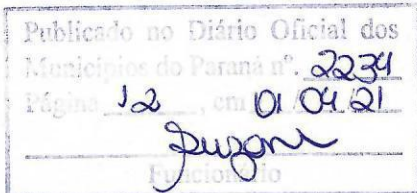 Publicado no Diário Oficial dos
Municípios do Paraná nº. 2234
Página 12, em 01/04/21
Suzana
Funcionário